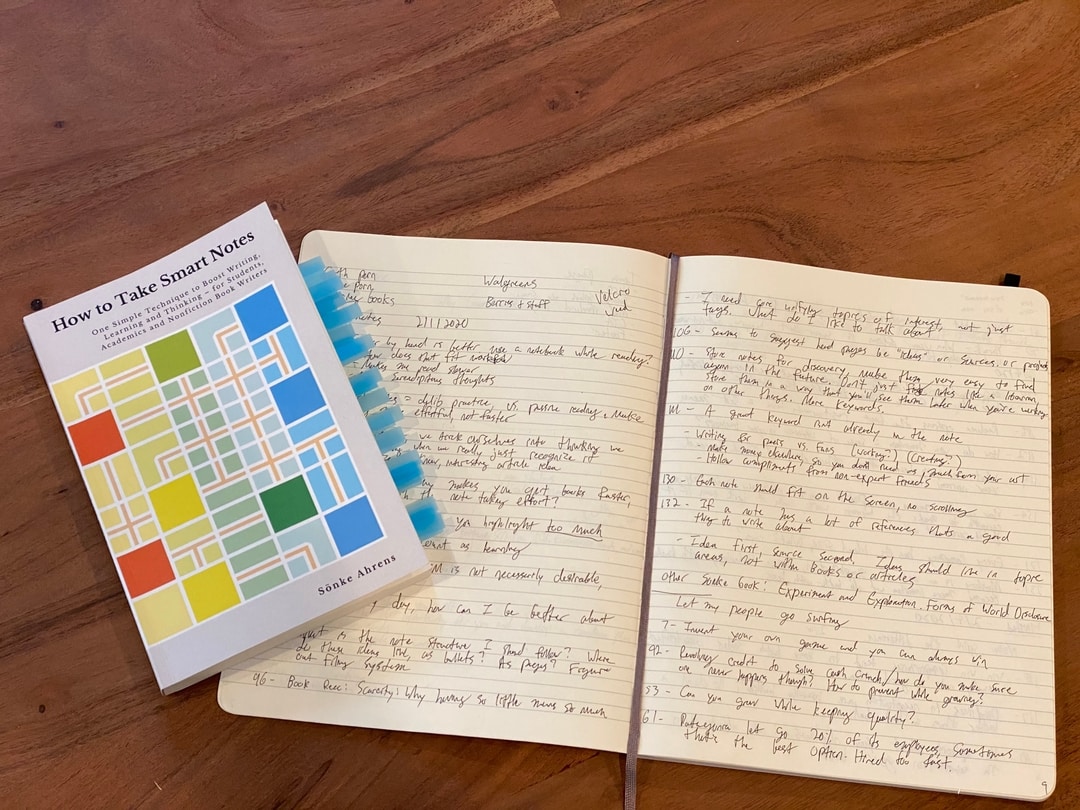 How to Take Smart Notes
One Simple Technique to Boost Writing,
Learning and Thinking – for Students,
Academics and Nonfiction Book Writers
Sönke Ahrens
porn Walgreens Velcro
porn,
books Barries + stuff
notes 2/1/2020
by hand is better use a notebook while reading?
does not fit
makes me read slower
Serendipitous thoughts
= delib practice, vs. passive reading. Make
effortful, not faster
we trick ourselves into thinking we
when we really just recognize it
new, interesting article idea
makes you get books faster,
note taking effort?
you highlight too much
as learning
is not necessarily desirable,
day, how can I be better about
is the note structure I should follow? Where
do these ideas live, as bullets? As pages? Figure
out filing system
96 - Book Rec: Scarcity: Why having so little means so much
- I need core unifying topics of interest, not just
tags. What do I like to talk about?
106 - Seems to suggest head pages be "ideas" or sources. or project
110 - Store notes for discovery, make them very easy to find
again in the future. Don't just notes like a librarian,
store them in a way that you'll see them later when you're working
on other things. More keywords.
111 - A great keyword not already in the note
- Writing for peers vs. fans (working?) (creating?)
- Make money elsewhere, so you don't need as much from your art
- Hollow compliments from non-expert friends
130 - Each note should fit on the screen, no scrolling
132 - If a note has a lot of references that's a good
thing to write about
- Idea first, source second. Ideas should live in topic
areas, not within books or articles
other Sonke book: Experiment and Exploration: Forms of World Disclosure
Let my people go surfing
7 - Invent your own game and you can always win
92 - Revolving credit to solve cash crunch/how do you make sure
one never happens though? How to prevent while growing?
53 - Can you grow while keeping quality?
61 - Patagonia let go 20% of its employees, sometimes
that's the best option. Hired too fast.
9